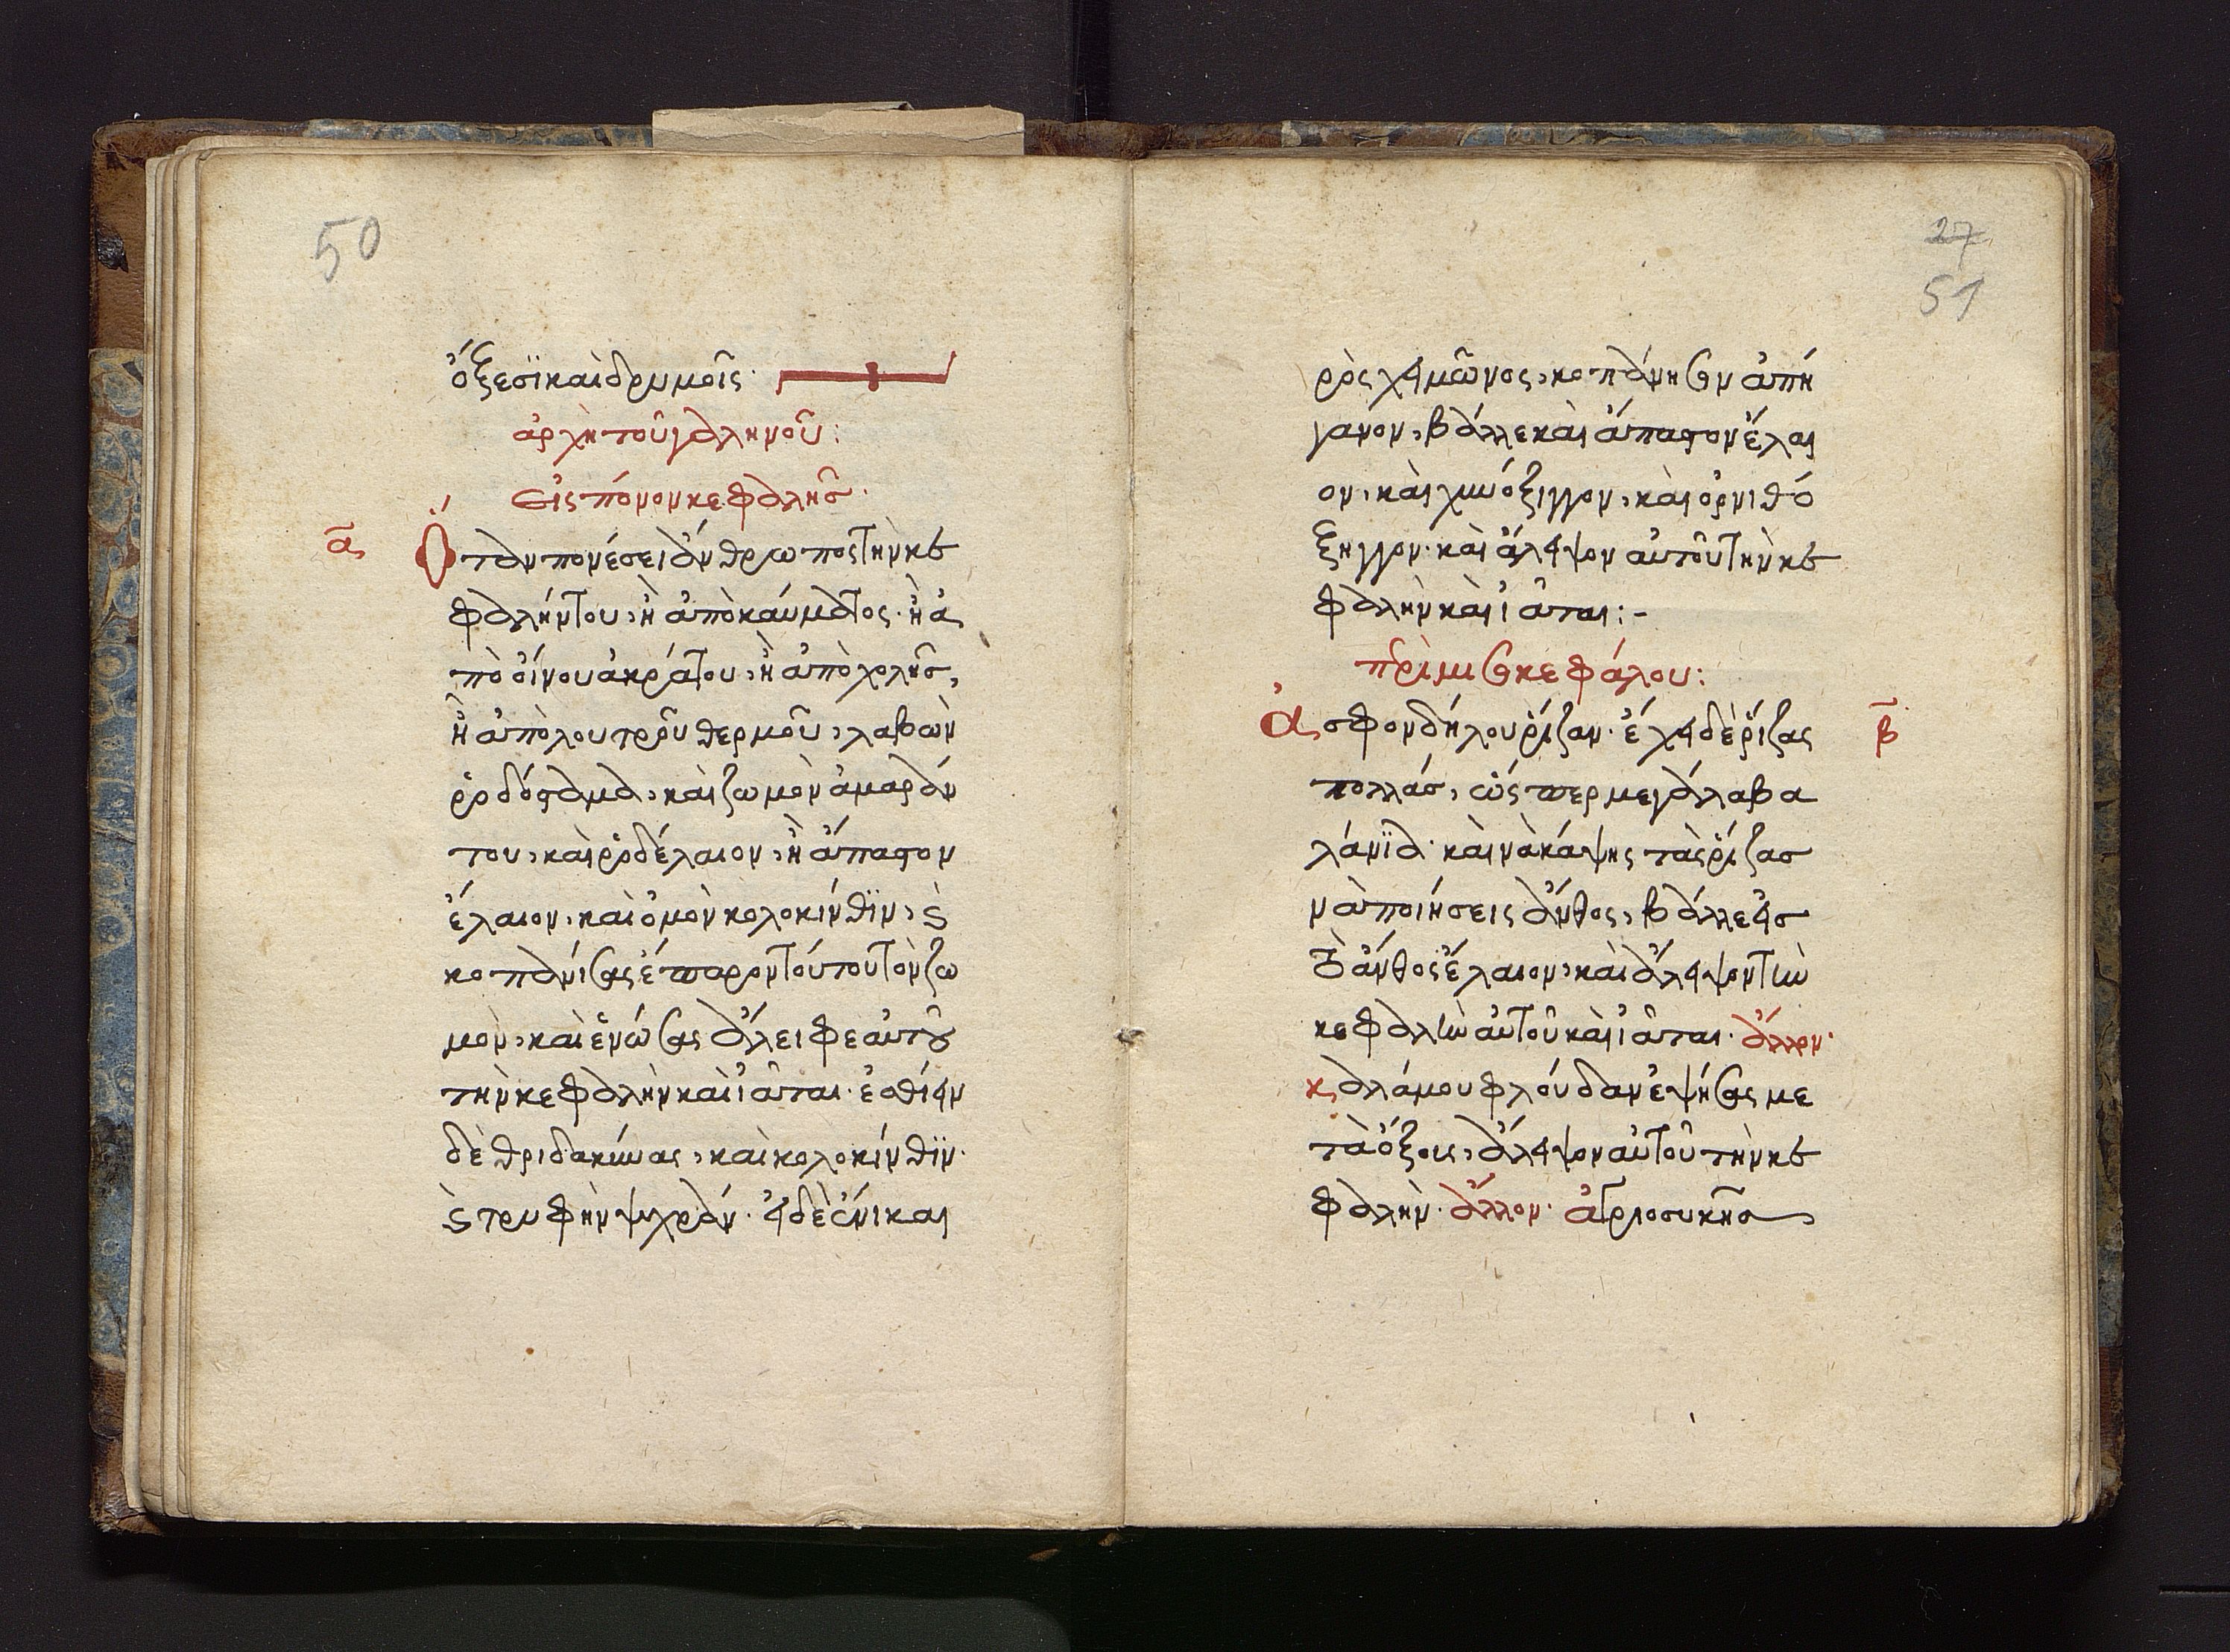 50
ὄξεσϊ καὶ δρυμοῖς·
ἀρχὴ τοῦ γαληνοῦ:
Εἰς πόνον κεφαλῆς·
ᾱ Ὅταν πονέσει ἄνθρωπος τὴν κε
φαλήν του, ἢ ἀπὸ καύματος· ἢ ἀ
πὸ οἴνου ἀκράτου, ἢ ἀπὸ χολῆς,
ἢ ἀπὸ λουτροῦ θερμοῦ, λαβὼν
ῥοδόσταμα, καὶ ζωμὸν ἀμαράν
του, καὶ ῥοδέλαιον, ἢ ἄπαστον
ἔλαιον, καὶ ὀμὸν κολοκίνθϊν, ϛ̀
κοπανίσας ἔπαρον τούτου τὸν ζω
μὸν, καὶ ἑνώσας ἄλειφε αὐτοῦ
τὴν κεφαλὴν καὶ ἰᾶται· ἐσθίειν
δὲ θριδακίνας, καὶ κολοκίνθϊν·
ϛ̀ τρυφὴν ψυχράν· εἰ δὲ ἔνι και
27
51
ρὸς χειμῶνος, κοπάνησον ἀπή
γανον, βάλλε καὶ ἄπαστον ἔλαι
ον, καὶ χυνόξιγγον, καὶ ὀρνιθό
ξηγγον· καὶ ἄλειψον αὐτοῦ τὴν κε
φαλὴν καὶ ἰᾶται:-
περὶ ἡμισυκεφάλου:
Ἀσφονδήλου ῥίζαν· ἔχει δὲ ῥίζας β̄
πολλάς, ὥσπερ μεγάλα βα
λάνϊα· καὶ νὰ κάψης τὰς ῥίζας
νὰ ποιήσεις ἄνθος, βάλλε εἰς
τὸ ἄνθος ἔλαιον, καὶ ἄλειψον τὴν
κεφαλὴν αὐτοῦ καὶ ἰᾶται· ἄλλον·
καλάμου φλούδαν ἑψήσας με
τὰ ὄξους, ἄλειψον αὐτοῦ τὴν κε
φαλὴν· ἄλλον· ἀγριοσυκῆς,